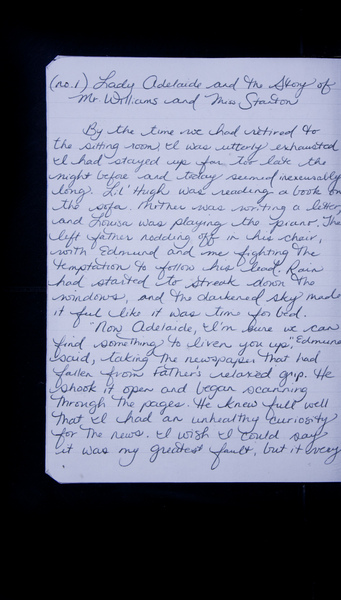 (no.1) Lady Adelaide and the Story of
Mr Williams and Miss Stanton
By the time we had retired to
the sitting room, I was utterly exhausted
I had stayed up far too late the
night before and today seemed inexorably
long. Lil' Hugh was reading a book on
the sofa. Mother was writing a letter,
and Louisa was playing the piano. The
left father nodding off in his chair,
with Edmund and me fighting the
temptation to follow his lead. Rain
had started to streak down the
windows, and the darkened sky made
it feel like it was time for bed.
"Now Adelaide, I'm sure we can
find something to liven you up," Edmund
said, taking the newspaper that had
fallen from Father's relaxed grip. He
shook it open and began scanning
through the pages. He knew full well
that I had an unhealthy curiosity
for the news. I wish I could say
it was my greatest fault, but it very